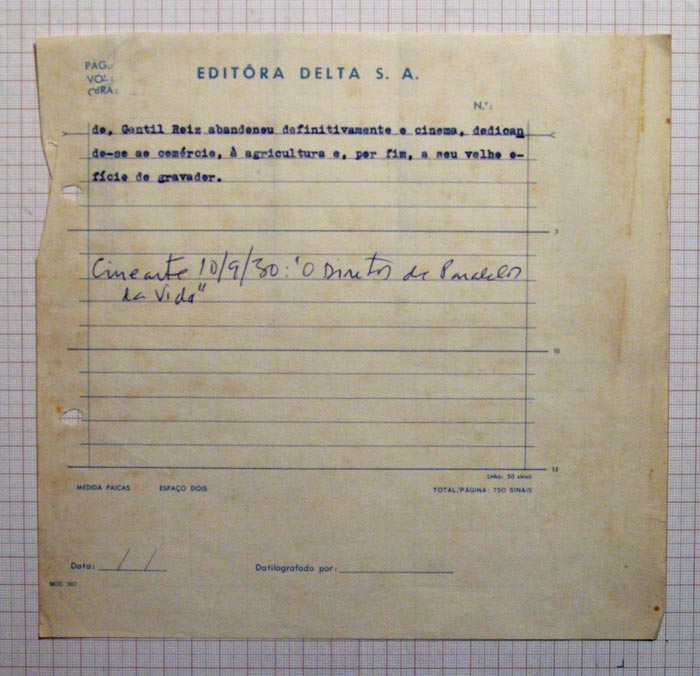 PÁG.:
VOL:
OBRA:
EDITÔRA DELTA S. A.
N.º:
do, Gentil Roiz abandonou definitivamente o cinema, dedican
do-se ao comércio, à agricultura e, por fim, a seu velho o-
fício de gravador.
5
Cinearte 10/9/30: "O Diretor de Parcelos
da Vida"
10
15
Linha: 50 sinais
MEDIDA PAICAS ESPAÇO DOIS TOTAL/PÁGINA: 750 SINAIS
Data: / /
Datilografado por:
MOD. 267